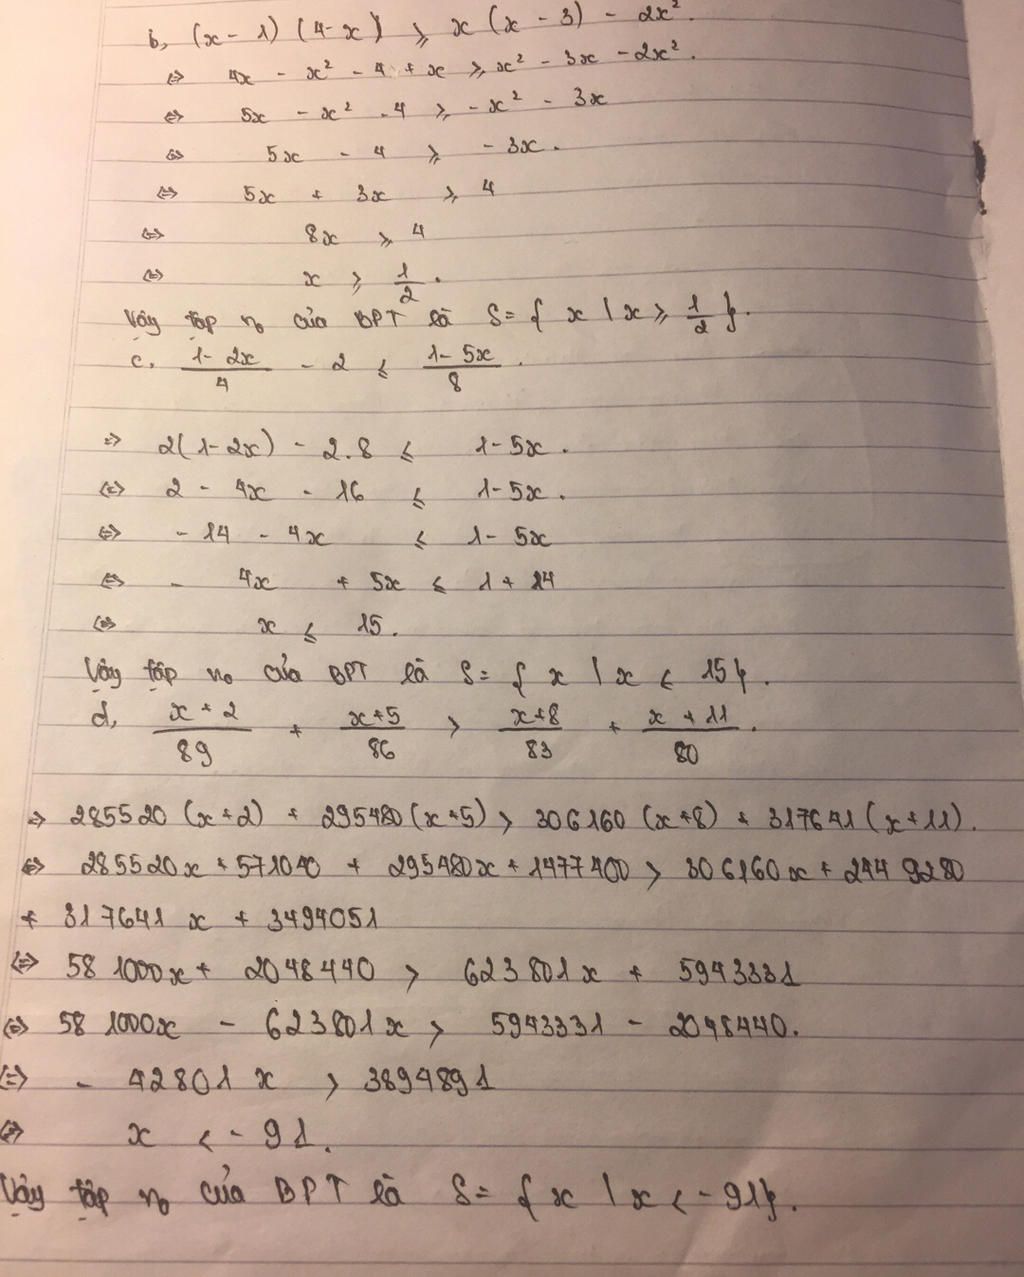 b, (x - 1) (4 - x) ⩾ x (x - 3) - 2x².
⇔ 4x - x² - 4 + x ⩾ x² - 3x - 2x².
⇔ 5x - x² - 4 ⩾ - x² - 3x
⇔ 5x - 4 ⩾ - 3x.
⇔ 5x + 3x ⩾ 4
⇔ 8x ⩾ 4
⇔ x ⩾ 1/2.
Vậy tập n₀ của BPT là S = { x | x ⩾ 1/2 }.
c, (1 - 2x)/4 - 2 ⩽ (1 - 5x)/8.
=> 2(1 - 2x) - 2.8 ⩽ 1 - 5x.
⇔ 2 - 4x - 16 ⩽ 1 - 5x.
⇔ - 14 - 4x ⩽ 1 - 5x
⇔ - 4x + 5x ⩽ 1 + 14
⇔ x ⩽ 15.
Vậy tập n₀ của BPT là S = { x | x ⩽ 15 }.
d, (x + 2)/89 + (x + 5)/86 > (x + 8)/83 + (x + 11)/80.
=> 285520 (x + 2) + 295480 (x + 5) > 306160 (x + 8) + 317641 (x + 11).
⇔ 285520x + 571040 + 295480x + 1477400 > 306160x + 2449280
+ 317641x + 3494051
⇔ 581000x + 2048440 > 623801x + 5943331
⇔ 581000x - 623801x > 5943331 - 2048440.
⇔ - 42801x > 3894891
⇔ x < - 91.
Vậy tập n₀ của BPT là S = { x | x < - 91 }.